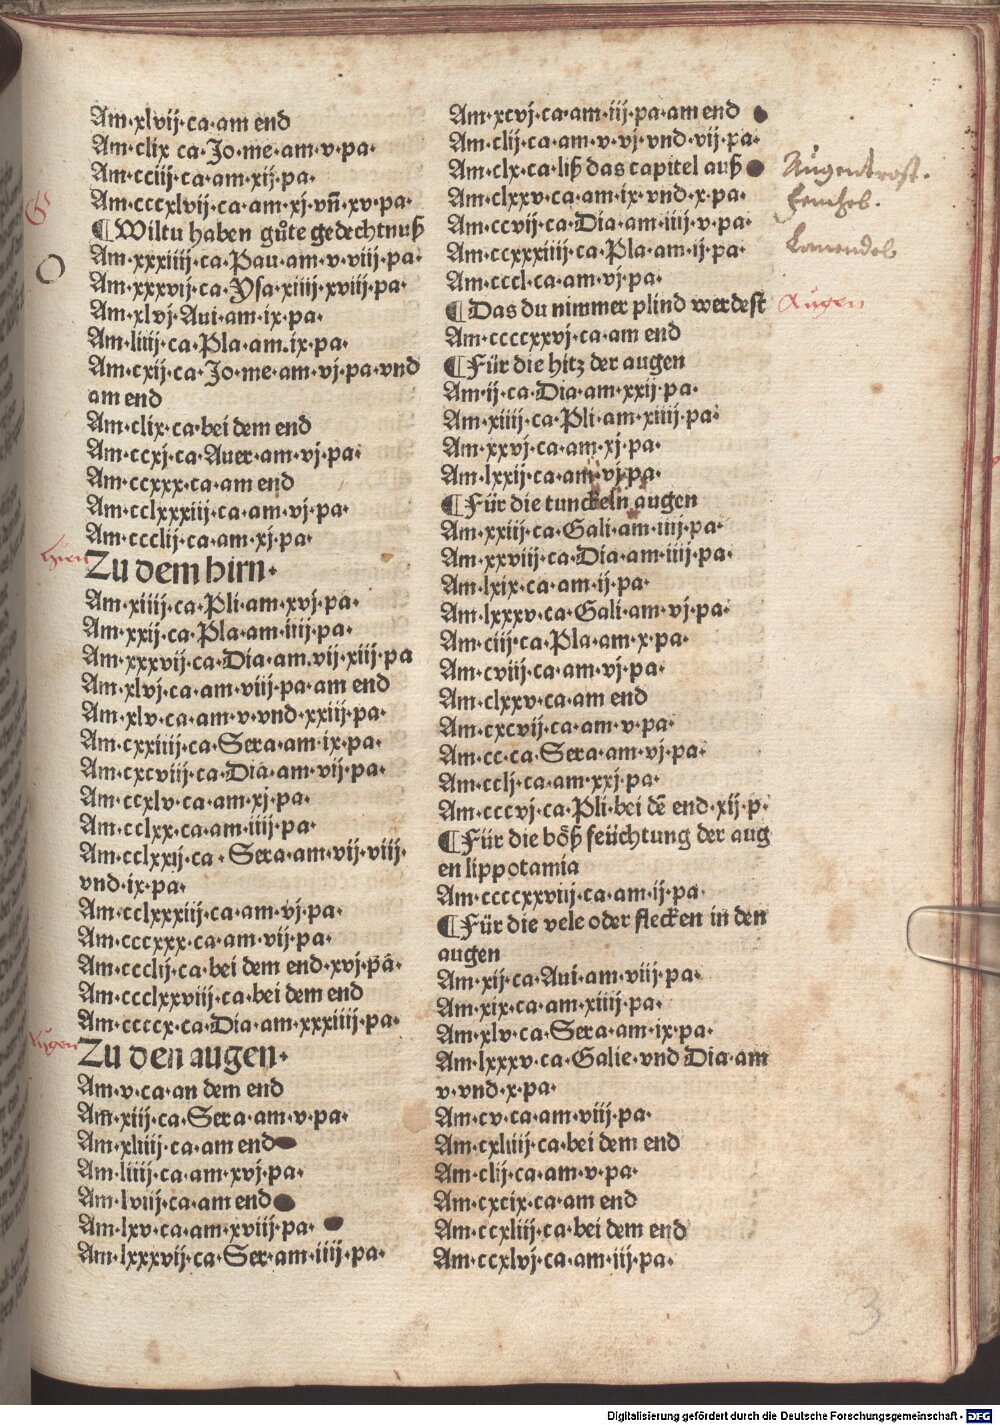 Am·xlvij·ca·am end
Am·clix ca·Jo·me·am·v·pa·
Am·cciij·ca·am·xij·pa·
Am·cccxlvij·ca·am·xj·vñ·xv·pa·
¶Wiltu haben gůte gedechtnuß
Am·xxxiiij·ca·Pau·am·v·viij·pa·
Am·xxxvij·ca·Ysa·xiiij·xviij·pa·
Am·xlvj·Aui·am·ix·pa·
Am·liiij·ca·Pla·am·ix·pa·
Am·cxij·ca·Jo·me·am·vj·pa·vnd
am end
Am·clix·ca·bei dem end
Am·ccxj·ca·Auer·am·vj·pa·
Am·ccxxx·ca·am end
Am·cclxxxiij·ca·am·vj·pa·
Am·ccclij·ca·am·xj·pa·
hirn
Zu dem hirn·
Am·xiiij·ca·Pli·am·xvj·pa·
Am·xxij·ca·Pla·am·iiij·pa·
Am·xxxvij·ca·Dia·am·vij·xiij·pa
Am·xlvj·ca·am·viij·pa·am end
Am·xlv·ca·am·v·vnd·xxiij·pa·
Am·cxxiiij·ca·Sera·am·ix·pa·
Am·cxcviij·ca·Dia·am·vij·pa·
Am·ccxlv·ca·am·xj·pa·
Am·cclxx·ca·am·iiij·pa·
Am·cclxxij·ca·Sera·am·vij·viij·
vnd·ix·pa·
Am·cclxxxiij·ca·am·vj·pa·
Am·cccxxx·ca·am·vij·pa·
Am·ccclij·ca·bei dem end·xvj·pa·
Am·ccclxxviij·ca·bei dem end
Am·ccccx·ca·Dia·am·xxxiiij·pa·
Augen
Zu den augen·
Am·v·ca·an dem end
Am·xiij·ca·Sera·am·v·pa·
Am·xliiij·ca·am end
Am·liiij·ca·am·xvj·pa·
Am·lviij·ca·am end
Am·lxv·ca·am·xviij·pa·
Am·lxxxvij·ca·Ser·am·iiij·pa·
Am·xcvj·ca·am·iij·pa·am end
Am·clij·ca·am·v·vj·vnd·vij·pa·
Am·clx·ca·liß das capitel auß
Augentrost.
Am·clxxv·ca·am·ix·vnd·x·pa·
Fenchel.
Am·ccvij·ca·Dia·am·iiij·v·pa·
Am·ccxxxiiij·ca·Pla·am·ij·pa·
Lauendel
Am·cccl·ca·am·vj·pa·
¶Das du nimmer plind werdest
Augen
Am·ccccxxvj·ca·am end
¶Für die hitz der augen
Am·ij·ca·Dia·am·xxij·pa·
Am·xiiij·ca·Pli·am·xiiij·pa·
Am·xxvj·ca·am·xj·pa·
Am·lxxij·ca·am·vj·pa·
¶Für die tunckeln augen
Am·xxiij·ca·Gali·am·iiij·pa·
Am·xxviij·ca·Dia·am·iiij·pa·
Am·lxix·ca·am·ij·pa·
Am·lxxxv·ca·Gali·am·vj·pa·
Am·ciij·ca·Pla·am·x·pa·
Am·cviij·ca·am·vj·pa·
Am·clxxv·ca·am end
Am·cxcvij·ca·am·v·pa·
Am·cc·ca·Sera·am·vj·pa·
Am·cclj·ca·am·xxj·pa·
Am·cccvj·ca·Pli·bei dē end·xij·p·
¶Für die böß feüchtung der aug
en lippotamia
Am·ccccxxviij·ca·am·ij·pa·
¶Für die vele oder flecken in den
augen
Am·xij·ca·Aui·am·viij·pa·
Am·xix·ca·am·xiiij·pa·
Am·xlv·ca·Sera·am·ix·pa·
Am·lxxxv·ca·Galie·vnd Dia·am
v·vnd·x·pa·
Am·cv·ca·am·viij·pa·
Am·cxliiij·ca·bei dem end
Am·clij·ca·am·v·pa·
Am·cxcix·ca·am end
Am·ccxliij·ca·bei dem end
Am·ccxlvj·ca·am·iij·pa·
3
Digitalisierung gefördert durch die Deutsche Forschungsgemeinschaft - DFG